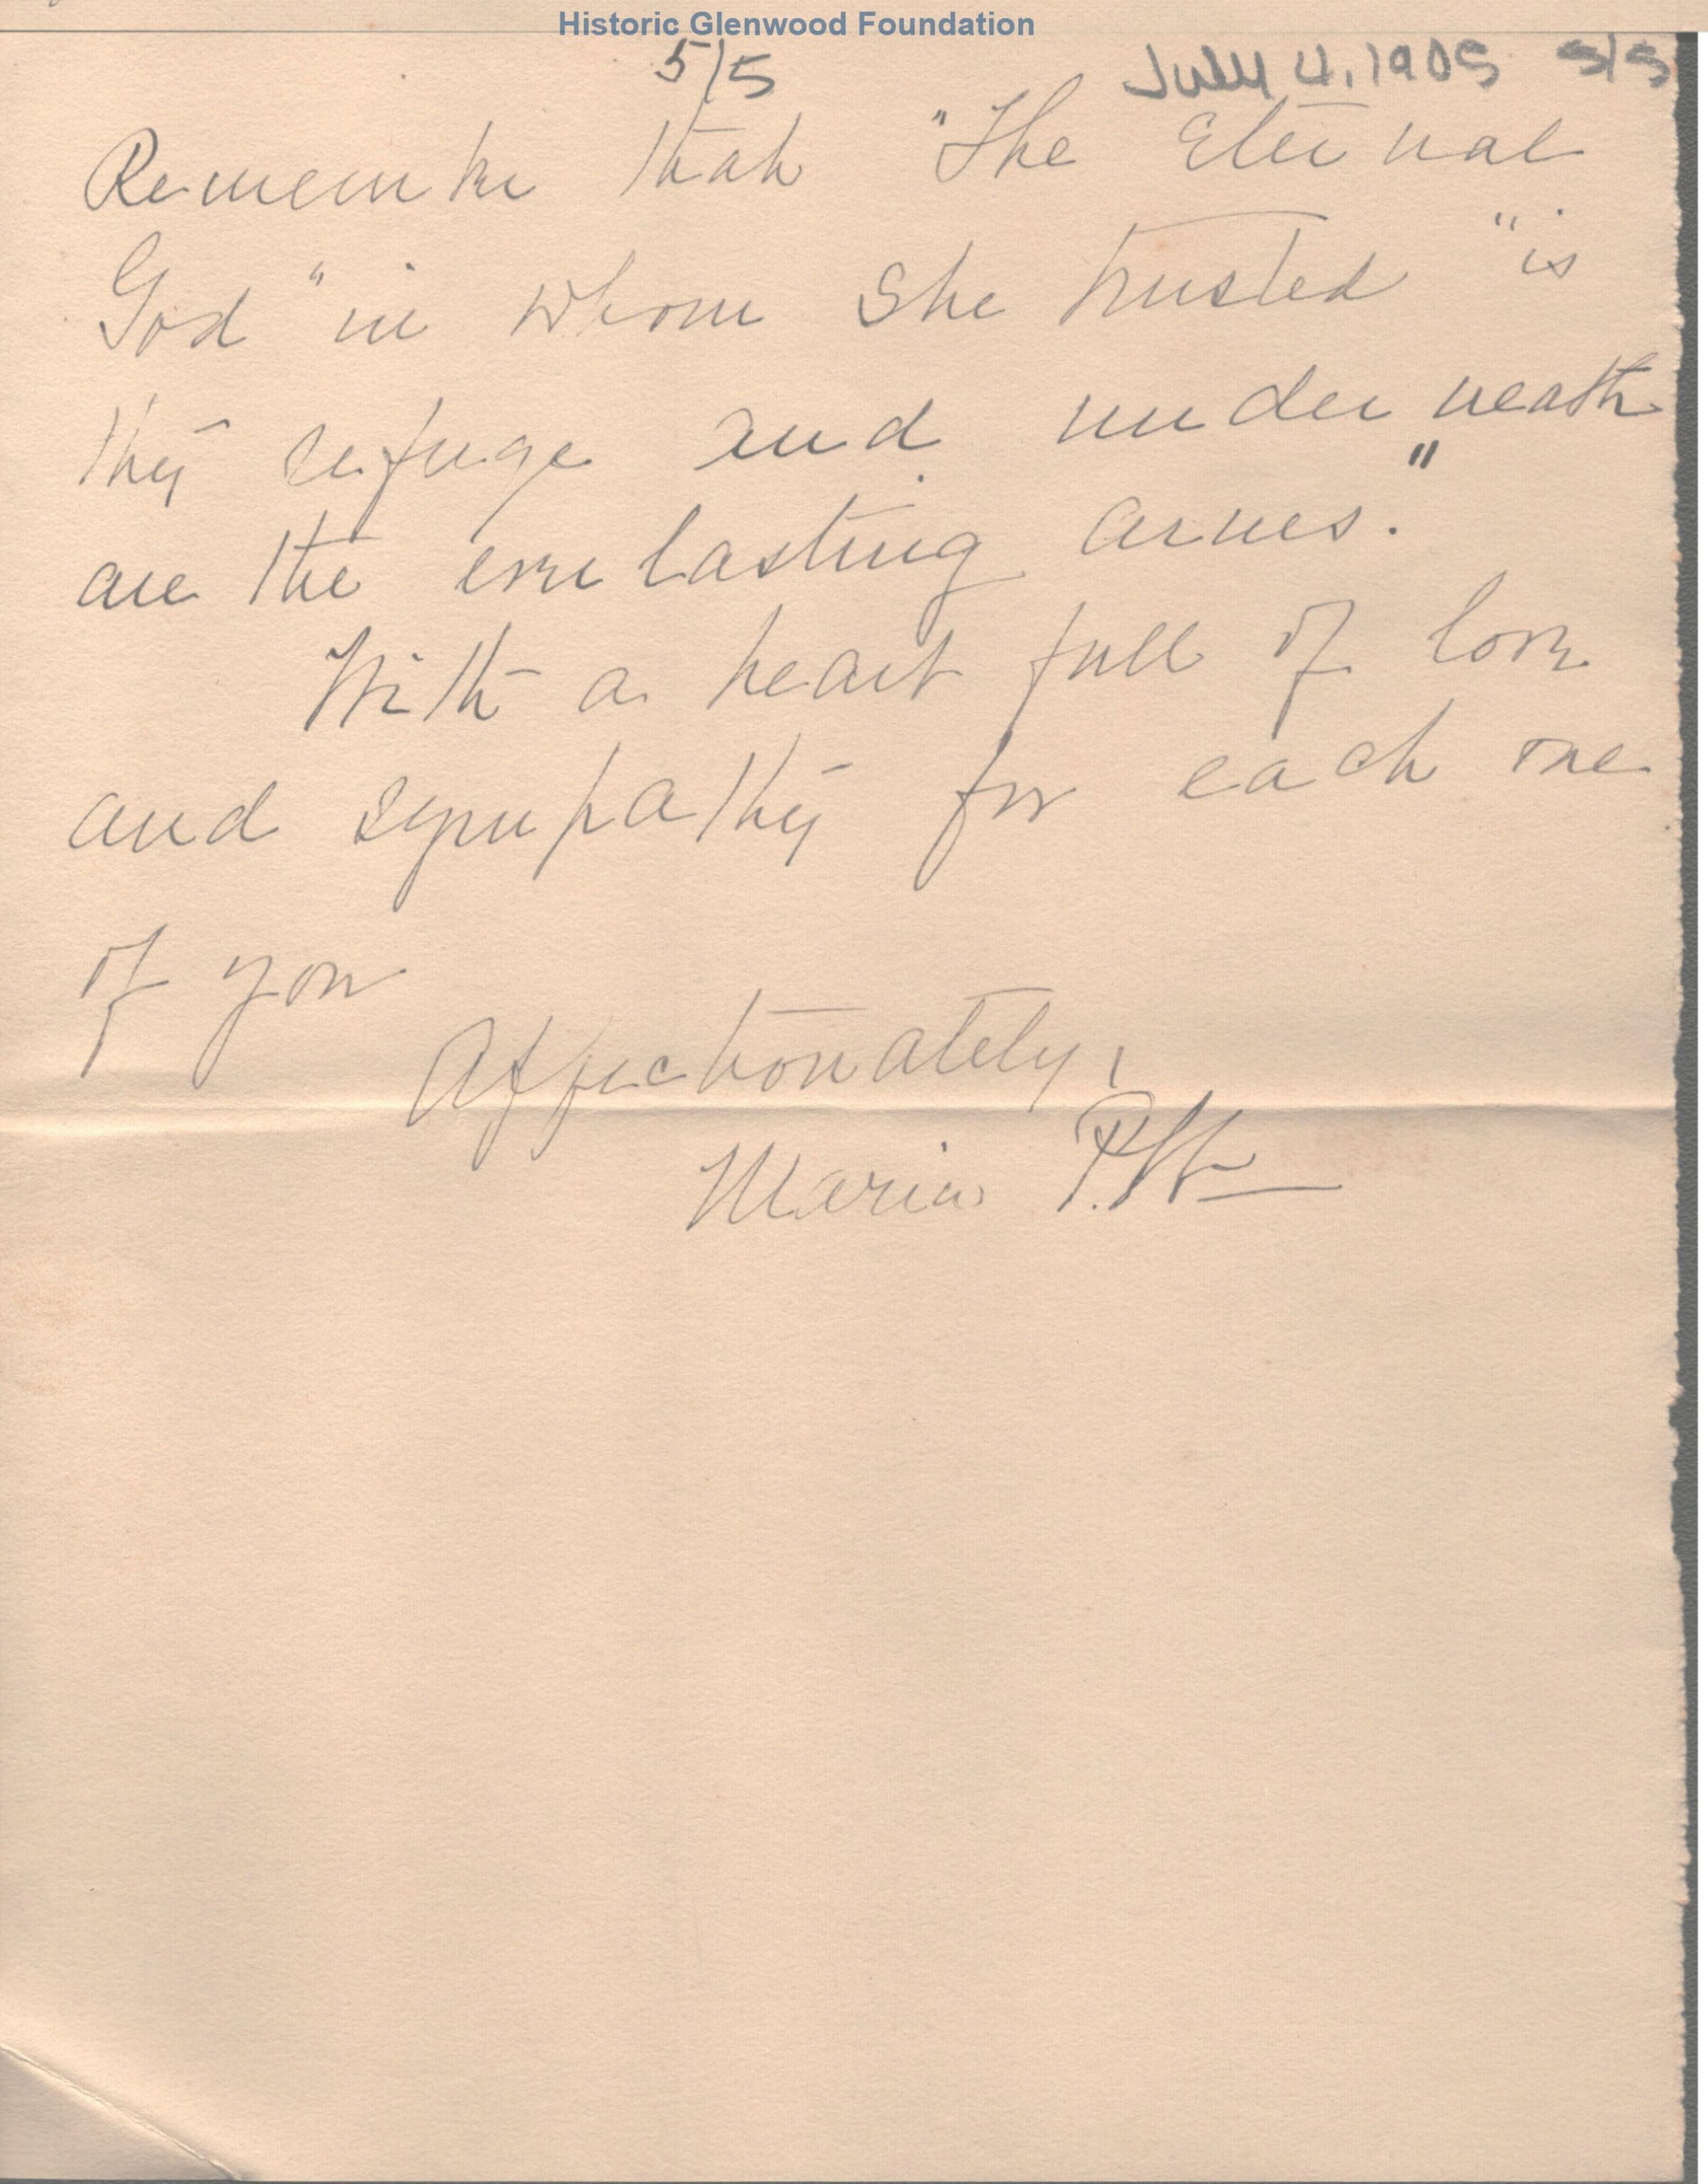 Historic Glenwood Foundation
5/5 July 4, 1905 5/5
Remember that "The Eternal
God" in whom she trusted "is
thy refuge and underneath
are the everlasting arms."
With a heart full of love
and sympathy for each one
of you
Affectionately,
Maria P.